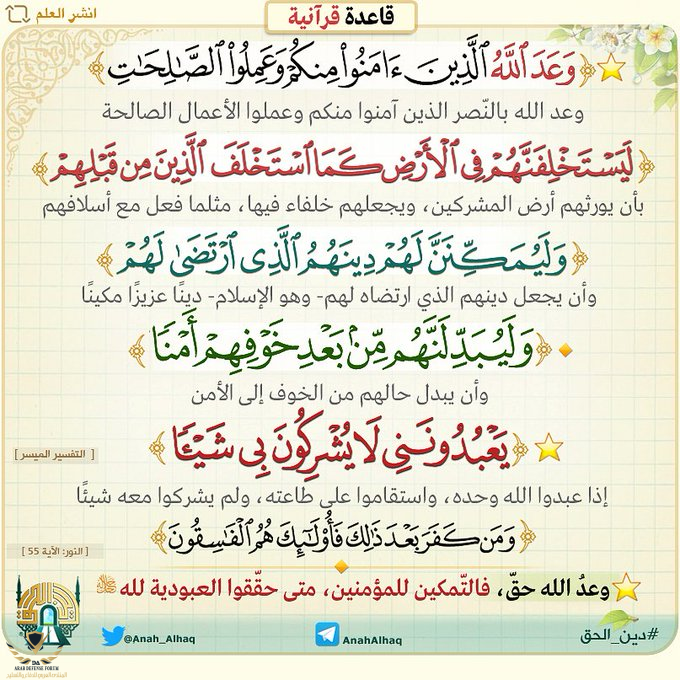 انشر العلم
قاعدة قرآنية
﴿وَعَدَ ٱللَّهُ ٱلَّذِينَ ءَامَنُوا۟ مِنكُمْ وَعَمِلُوا۟ ٱلصَّـٰلِحَـٰتِ﴾
وعد الله بالنّصر الذين آمنوا منكم وعملوا الأعمال الصالحة
﴿لَيَسْتَخْلِفَنَّهُمْ فِى ٱلْأَرْضِ كَمَا ٱسْتَخْلَفَ ٱلَّذِينَ مِن قَبْلِهِمْ﴾
بأن يورثهم أرض المشركين، ويجعلهم خلفاء فيها، مثلما فعل مع أسلافهم
﴿وَلَيُمَكِّنَنَّ لَهُمْ دِينَهُمُ ٱلَّذِى ٱرْتَضَىٰ لَهُمْ﴾
وأن يجعل دينهم الذي ارتضاه لهم- وهو الإسلام- دينًا عزيزًا مكينًا
﴿وَلَيُبَدِّلَنَّهُم مِّنۢ بَعْدِ خَوْفِهِمْ أَمْنًا﴾
وأن يبدل حالهم من الخوف إلى الأمن
﴿يَعْبُدُونَنِى لَا يُشْرِكُونَ بِى شَيْـًٔا﴾
[ التفسير الميسر ]
إذا عبدوا الله وحده، واستقاموا على طاعته، ولم يشركوا معه شيئًا
﴿وَمَن كَفَرَ بَعْدَ ذَٰلِكَ فَأُو۟لَـٰٓئِكَ هُمُ ٱلْفَـٰسِقُونَ﴾
[ النور: الآية 55 ]
وعدُ الله حقّ، فالتّمكين للمؤمنين، متى حقّقوا العبودية لله ﷻ
#دين_الحق
AnahAlhaq
@Anah_Alhaq
ARAB DEFENSE FORUM